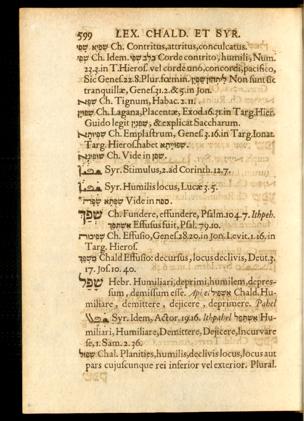 599 LEX. CHALD. ET SYR.
שפא Ch. Contritus, attritus, conculcatus.
שפי Ch. Idem. Corde contrito, humili, Num.
23.3. in T. Hieros. vel corde uno, concordi, pacifico,
Sic Genes 22.8. Plur. fœmin. Non sunt sic
tranquillæ, Genes. 31.2. & 5. in Jon.
Ch. Tignum, Habac. 2.11.
Ch. Lagana, Placentæ, Exod. 16.31. in Targ. Hier.
Guido legit & explicat Saccharum.
Ch. Emplastrum, Genes. 3.16. in Targ. Jonat.
Targ. Hieros. habet
Ch. Vide in
Syr. Stimulus, 2. ad Corinth. 12.7.
Syr. Humilis locus, Lucæ 3.5.
Vide in ספח
שפך Ch. Fundere, effundere, Psalm. 104.7. Ithpeh.
Effusus fuit, Psal. 79.10.
Ch. Effusio, Genes. 28.20. in Jon. Levit. 1.16. in
Targ. Hieros.
Chald Effusio: decursus, locus declivis, Deut. 3.
17. Jos. 10.40.
שפל Hebr. Humiliari, deprimi, humilem, depres-
sum, demissum esse. Aphel Chald. Hu-
miliare, demittere, dejicere, deprimere. Pahel
Syr. Idem, Actor. 19.16. Ithpahel Hu-
miliari, Humiliare, Demittere, Dejicere, Incurvare
se, 1. Sam. 2.36.
Chal. Planities, humilis, declivis locus, locus aut
pars cujuscunque rei inferior vel exterior. Plural.